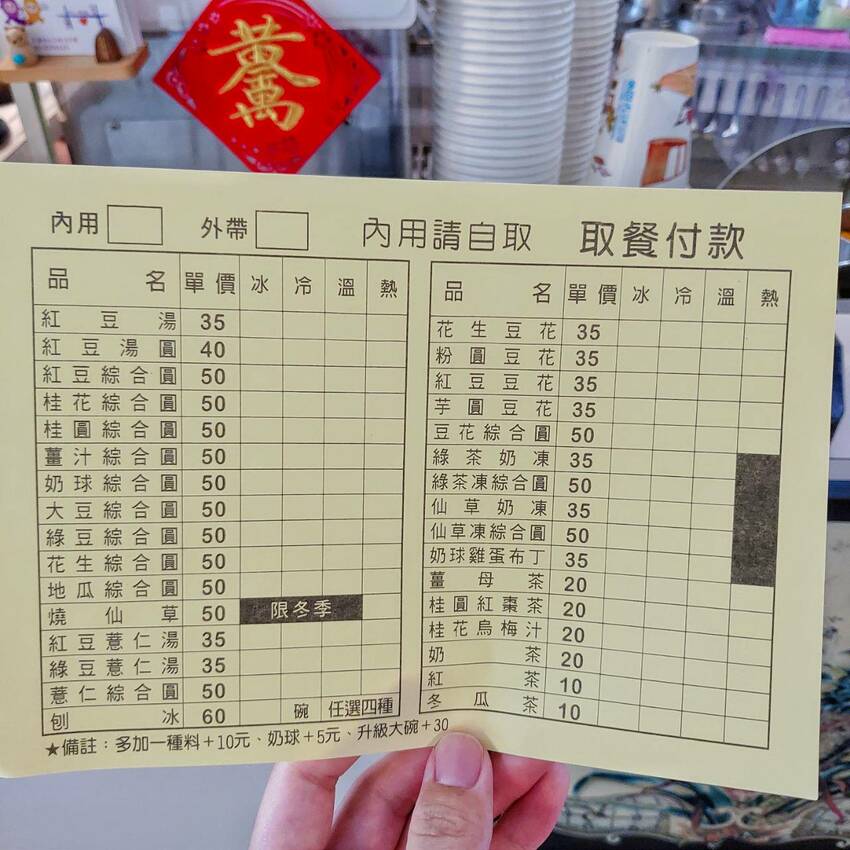 內用 外帶 內用請自取 取餐付款
品名 單價 冰 冷 溫 熱
紅豆湯 35
紅豆湯圓 40
紅豆綜合圓 50
桂花綜合圓 50
桂圓綜合圓 50
薑汁綜合圓 50
奶球綜合圓 50
大豆綜合圓 50
綠豆綜合圓 50
花生綜合圓 50
地瓜綜合圓 50
燒仙草 50 限冬季
紅豆薏仁湯 35
綠豆薏仁湯 35
薏仁綜合圓 50
刨冰 60 碗 任選四種
品名 單價 冰 冷 溫 熱
花生豆花 35
粉圓豆花 35
紅豆豆花 35
芋圓豆花 35
豆花綜合圓 50
綠茶奶凍 35
綠茶凍綜合圓 50
仙草奶凍 35
仙草凍綜合圓 50
奶球雞蛋布丁 35
薑母茶 20
桂圓紅棗茶 20
桂花烏梅汁 20
奶茶 20
紅茶 10
冬瓜茶 10
★備註：多加一種料+10元、奶球+5元、升級大碗+30